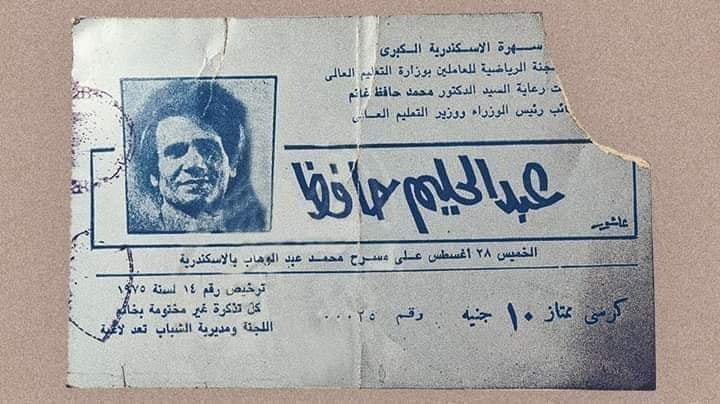 سهرة الاسكندرية الكبرى
جنة الرياضية للعاملين بوزارة التعليم العالى
ت رعاية السيد الدكتور محمد حافظ غانم
ائب رئيس الوزراء ووزير التعليم العـالى
عبد الحليم حافظ
عاشور
الخميس ٢٨ أغسطس على مسرح محمد عبد الوهاب بالاسكندرية
ترخيص رقم ١٤ لسنة ١٩٧٥
كل تذكرة غير مختومة بخاتم
اللجنة ومديرية الشباب تعد لاغية
كرسى ممتاز ١٠ جنيه رقم ٠٠٠٢٥